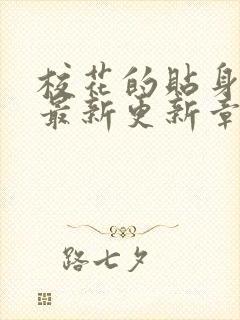 校花的贴身
最新更新章
路七夕